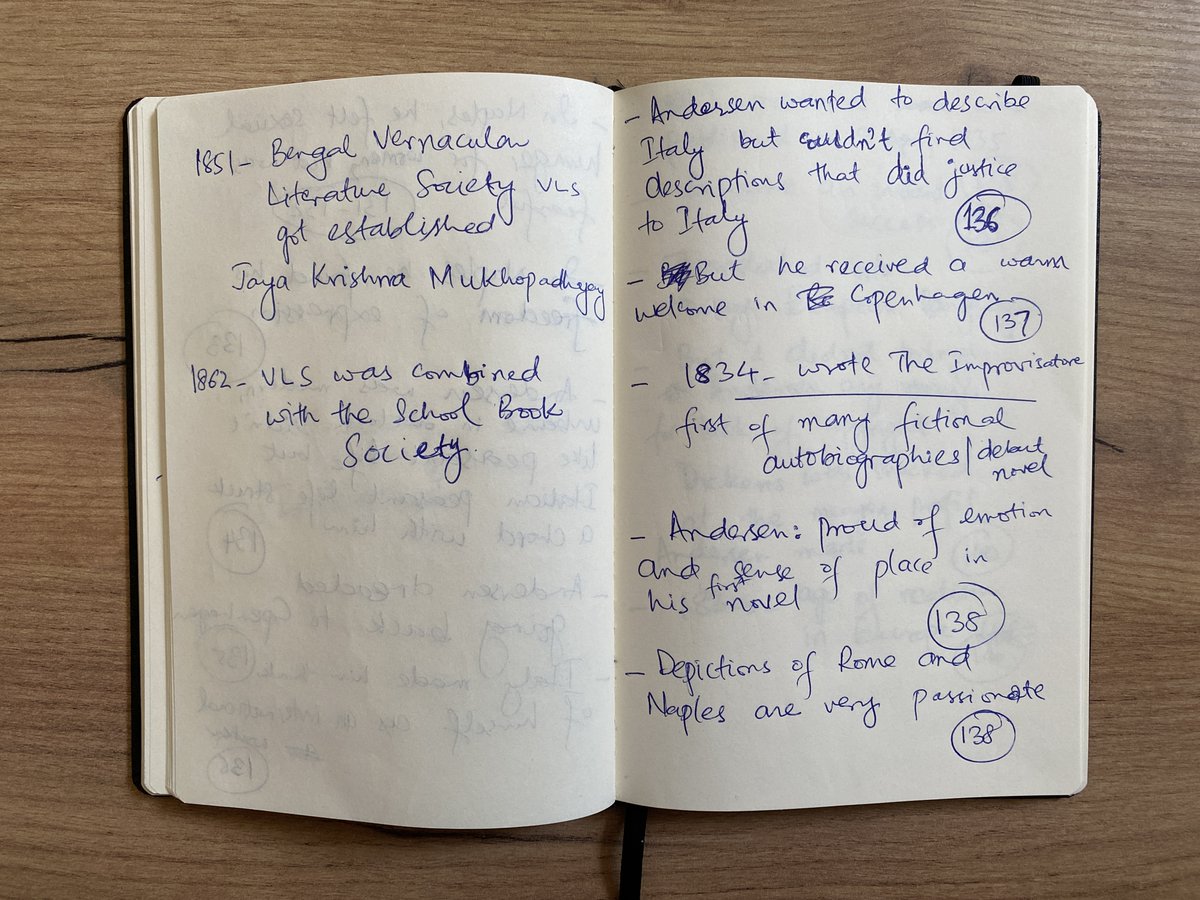 1851- Bengal Vernacular
Literature Society VLS
got established
Jaya Krishna Mukhopadhyay
1862- VLS was combined
with the School Book
Society.
- Andersen wanted to describe
Italy but couldn't find
descriptions that did justice
to Italy
136
- But he received a warm
welcome in Copenhagen
137
- 1834- wrote The Improvisatore
first of many fictional
autobiographies/debut
novel
- Andersen: proud of emotion
and sense of place in
his first novel
138
- Depictions of Rome and
Naples are very passionate
138